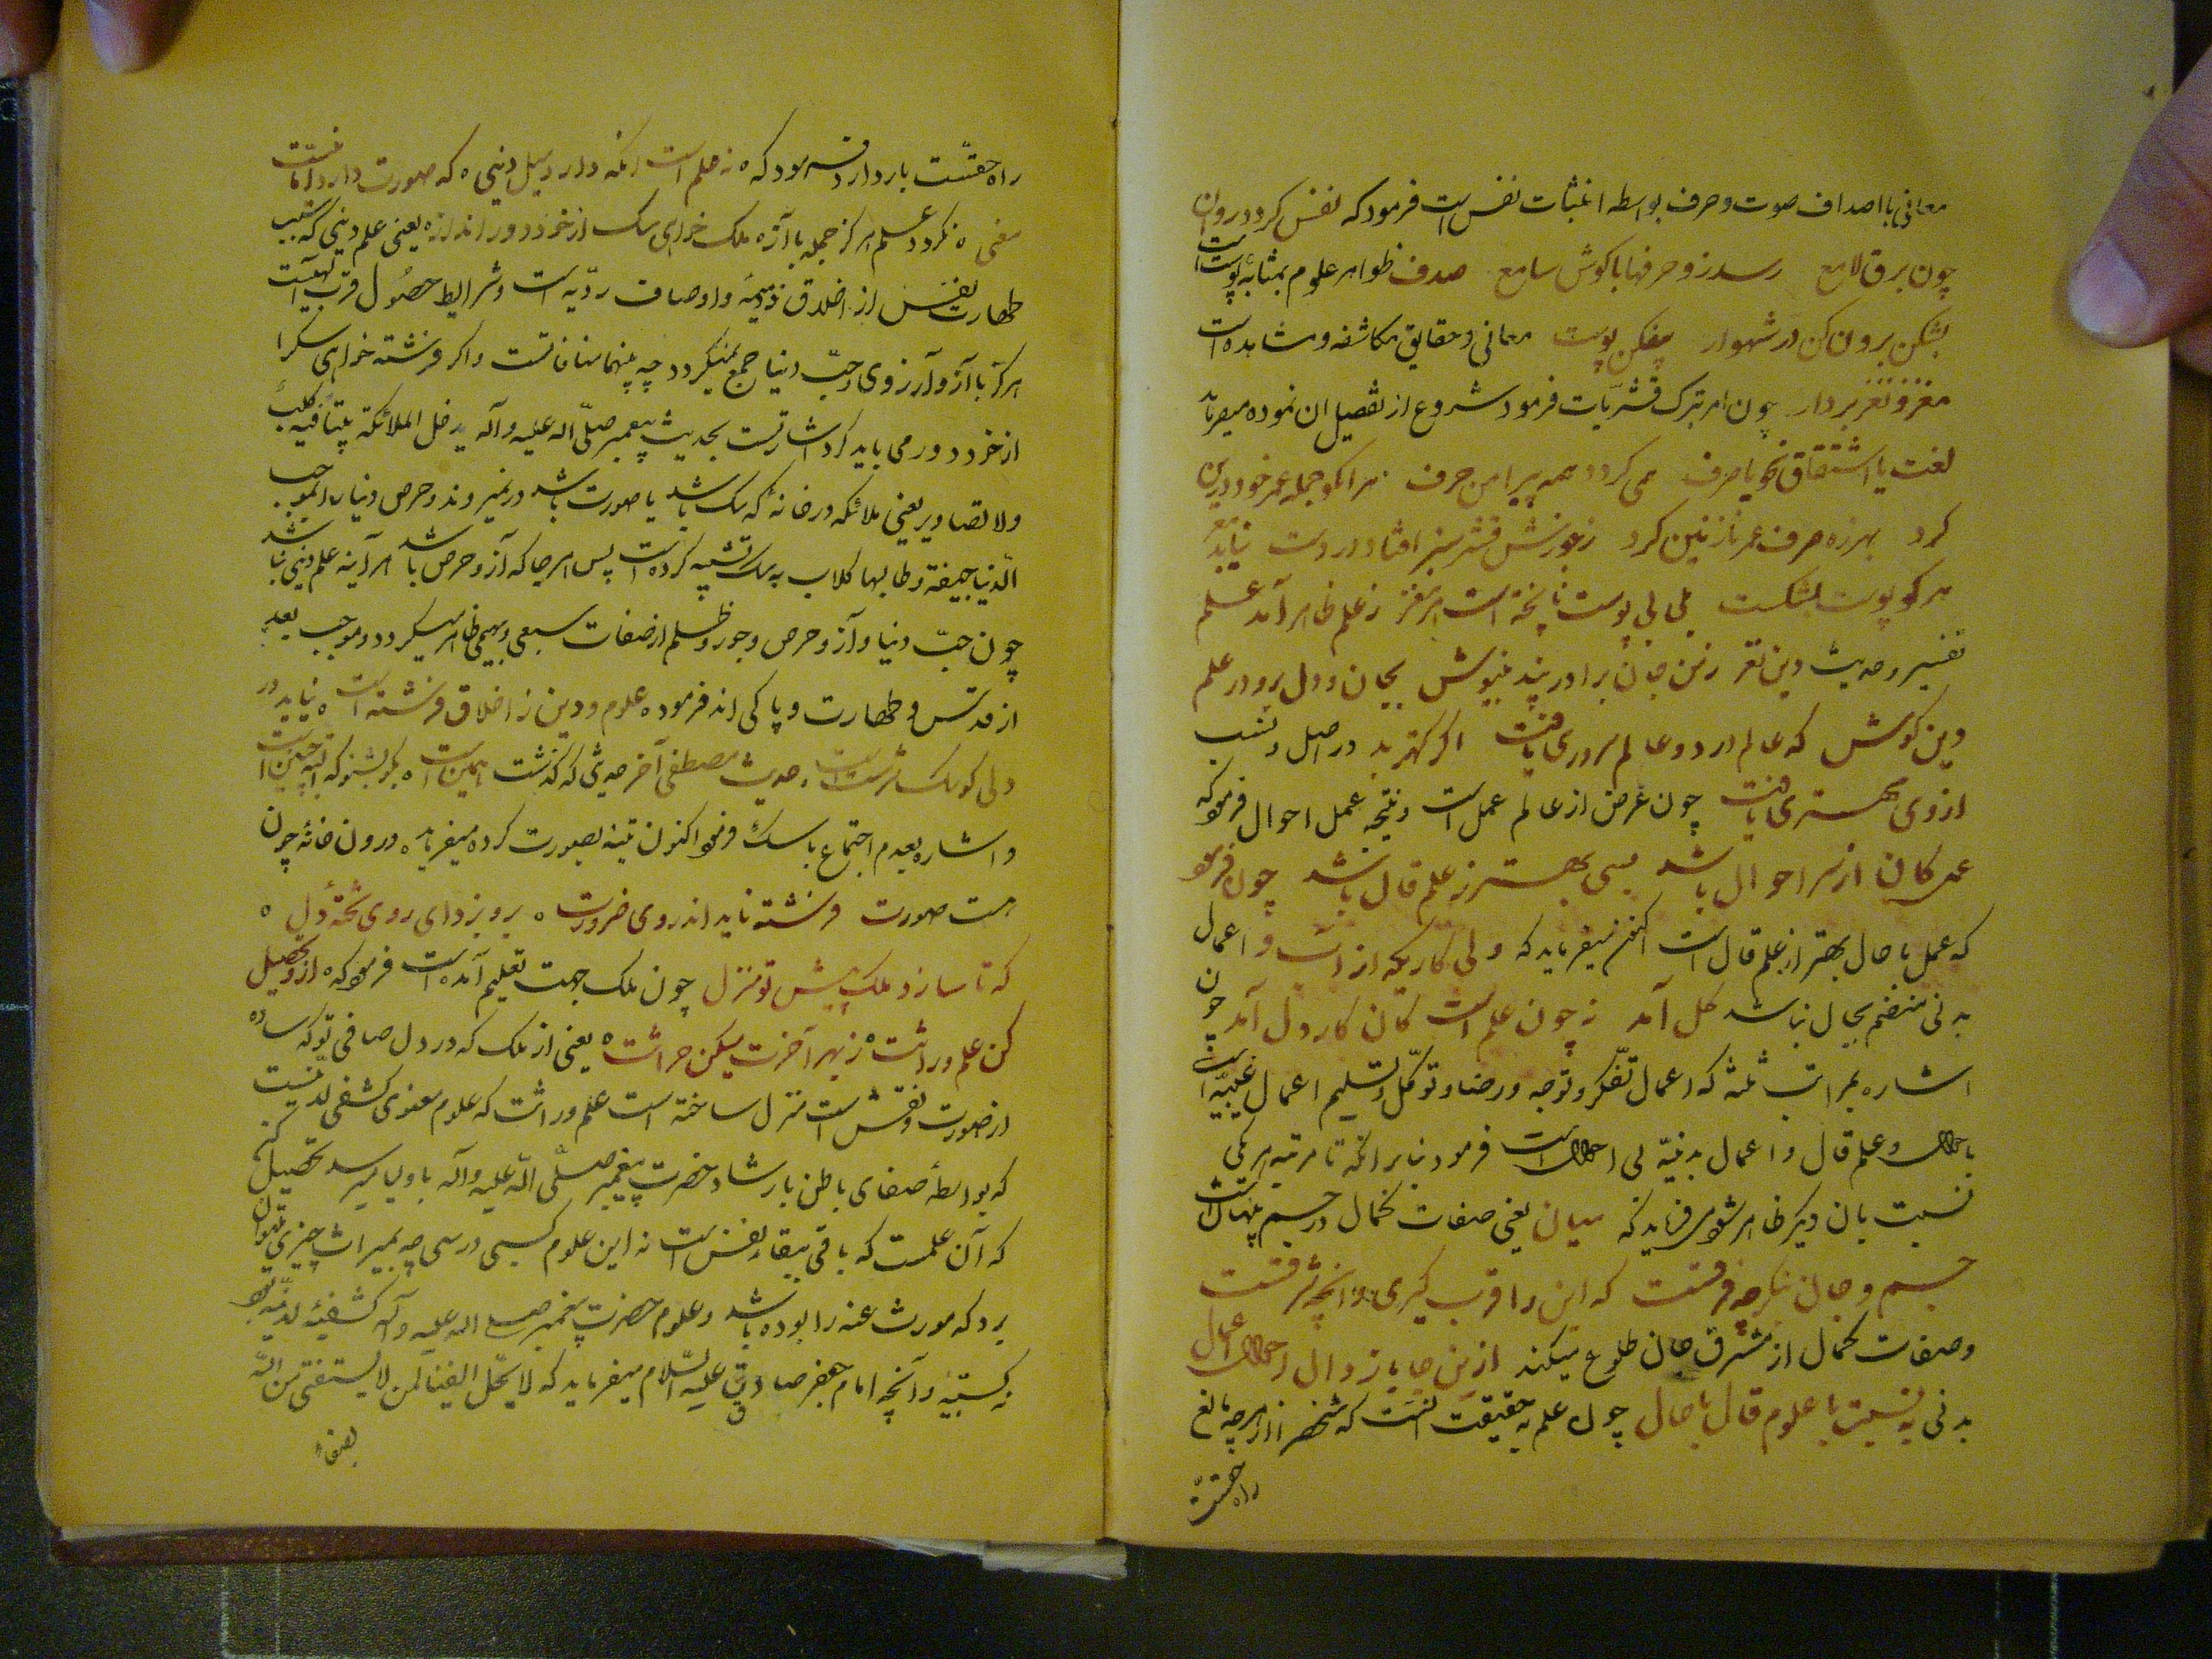 معانی با اصداف صوت و حرف بواسطه انبثاث نفس است فرمود که نفس کردد روان
چون برق لامع رسد زو حرفها با کوش سامع صدف ظواهر علوم بمثابۀ پوست است
بشکن برون کن در شهوار بیفکن پوست معانی و حقایق مکاشفه و مشاهده است
مغز نغز بردار چون امر بترک قشریات فرمود شروع از تفصیل ان نموده میفرماید
لغت با اشتقاق نحو با صرف همی کردد همه پیرامن حرف هر انکو جمله عمر خود درین
کرد بهرزه صرف عمر نازنین کرد ز جوزش قشر سبز افتاد در دست نیابد مغز
هر کو پوست نشکست بلی بی پوست ناپخته است هر مغز ز علم ظاهر آمد علم
تفسیر و حدیث دین نغز ز من جان برادر پند بنیوش بجان و دل برو در علم
دین کوش که عالم در دو عالم سروری یافت اگر کهتر بد در اصل و نسب
از وی مهتری یافت چون غرض از عالم عمل است و نتیجه عمل احوال فرمود که
عمل کان از سر احوال باشد بسی بهتر ز علم قال باشد چون فرمود
که عمل با حال بهتر از علم قال است اکنون میفرماید که ولی کاریکه از و اعمال
بدنی منضم بحال نباشد کل آمد نه چون علم است کان کار دل آمد چون
اشاره بمراتب ثلثه که اعمال تفکر و توجه و رضا و توکل و تسلیم اعمال غیبیه است
با حال و علم قال و اعمال بدنیه بی احوال است فرمود بنابر انکه تا مرتبه هر یکی
نسبت بان دیگر ظاهر شود میفرماید که میان یعنی صفات کمال در جسم پنهان است
جسم و جان بنکر چه فرقست که این را قرب کیری و انچه شرقست
و صفات کمال از مشرق جان طلوع میکند از اینجا باز دان احوال اعمال
بدنی به نسبت با علوم قال با حال چون علم به حقیقت انست که شخص را از هر چه مانع
راه حقست
راه حقست باز دارد فرمود که ه نه علم است انکه دارد میل دنیی ه که صورت دارد اما نیست
معنی ه نکردد علم هرکز جمع با آز ه ملک خواهی سک از خود دور انداز ه یعنی علم دینی که سبب
طهارت نفس از اخلاق ذمیمه و اوصاف ردیه است و شرایط حصول قرب الهیست
هرکز با آز و آرزوی و حب دنیا جمع نمیکردد چه بینهما منافاتست و اکر فرشته خواهی سک را
از خود دور می باید کرد اشارتست بحدیث پیغمبر صلی اله علیه و آله یدخل الملائکة بیتا فیه کلب
ولا تصاویر یعنی ملائکه در خانۀ که سک باشد یا صورت باشد در نمیروند و حرص دنیا را بموجب
الدنیا جیفة و طالبها کلاب به سک تشبیه کرده است پس هر جا که آز و حرص باشد هر آینه علم دینی نباشد
چون حب دنیا و آز و حرص و جور و ظلم از صفات سبعی و بهیمی ظاهر میکردد و موجب بعد
از قدس و طهارت و پاکی اند فرمود ه علوم دین ز اخلاق فرشته است ه نیاید در
دلی کو سک سرشت است ه حدیث مصطفی آخر حدیثی که کذشت همین است ه نکو بشنو که البته چنین است
و اشاره بعدم اجتماع با سک فرمود اکنون تنبیه بصورت کرده میفرماید ه درون خانۀ چون
هست صورت فرشته ناید اندر وی ضرورت ه برو بزدای روی تختۀ دل ه
که تا سازد ملک پیش تو منزل چون ملک جهت تعلیم آمده است فرمود که ه ازو تحصیل
کن علم وراثت ه ز بهر آخرت میکن حراثت ه یعنی از ملک که در دل صافی تو که ساده
از صورت و نقش است منزل ساخته است علم وراثت که علوم معنوی کشفی لدنیست
که بواسطۀ صفای باطن بارشاد حضرت پیغمبر صلی الله علیه و آله باولیا میرسد تحصیل کن
که آن علمست که باقی ببقاء نفس است نه این علوم کسبی و رسمی چه بمیراث چیزی میتوان
برد که مورث عنه را بوده باشد و علوم حضرت پیغمبر صلی اله علیه و آله کشفیۀ لدنیه بود
نه کسبیه و آنچه امام جعفر صادق علیه السلام میفرماید که لا یحل الفتیا لمن لا یستفتی من الله
بصفاء